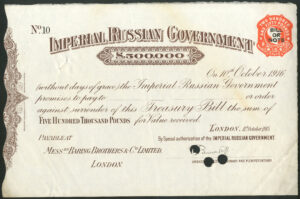 No. 10
IMPERIAL RUSSIAN GOVERNMENT
£500,000
On 10th October 1916
(without days of grace), the Imperial Russian Government
promises to pay to
or order
against surrender of this Treasury Bill the sum of
FIVE HUNDRED THOUSAND POUNDS for Value received.
LONDON,
By Special authorisation of the IMPERIAL RUSSIAN GOVERNMENT.
PAYABLE AT
MESSRS BARING BROTHERS & CO. LIMITED,
LONDON.
BILL
OR
NOTE